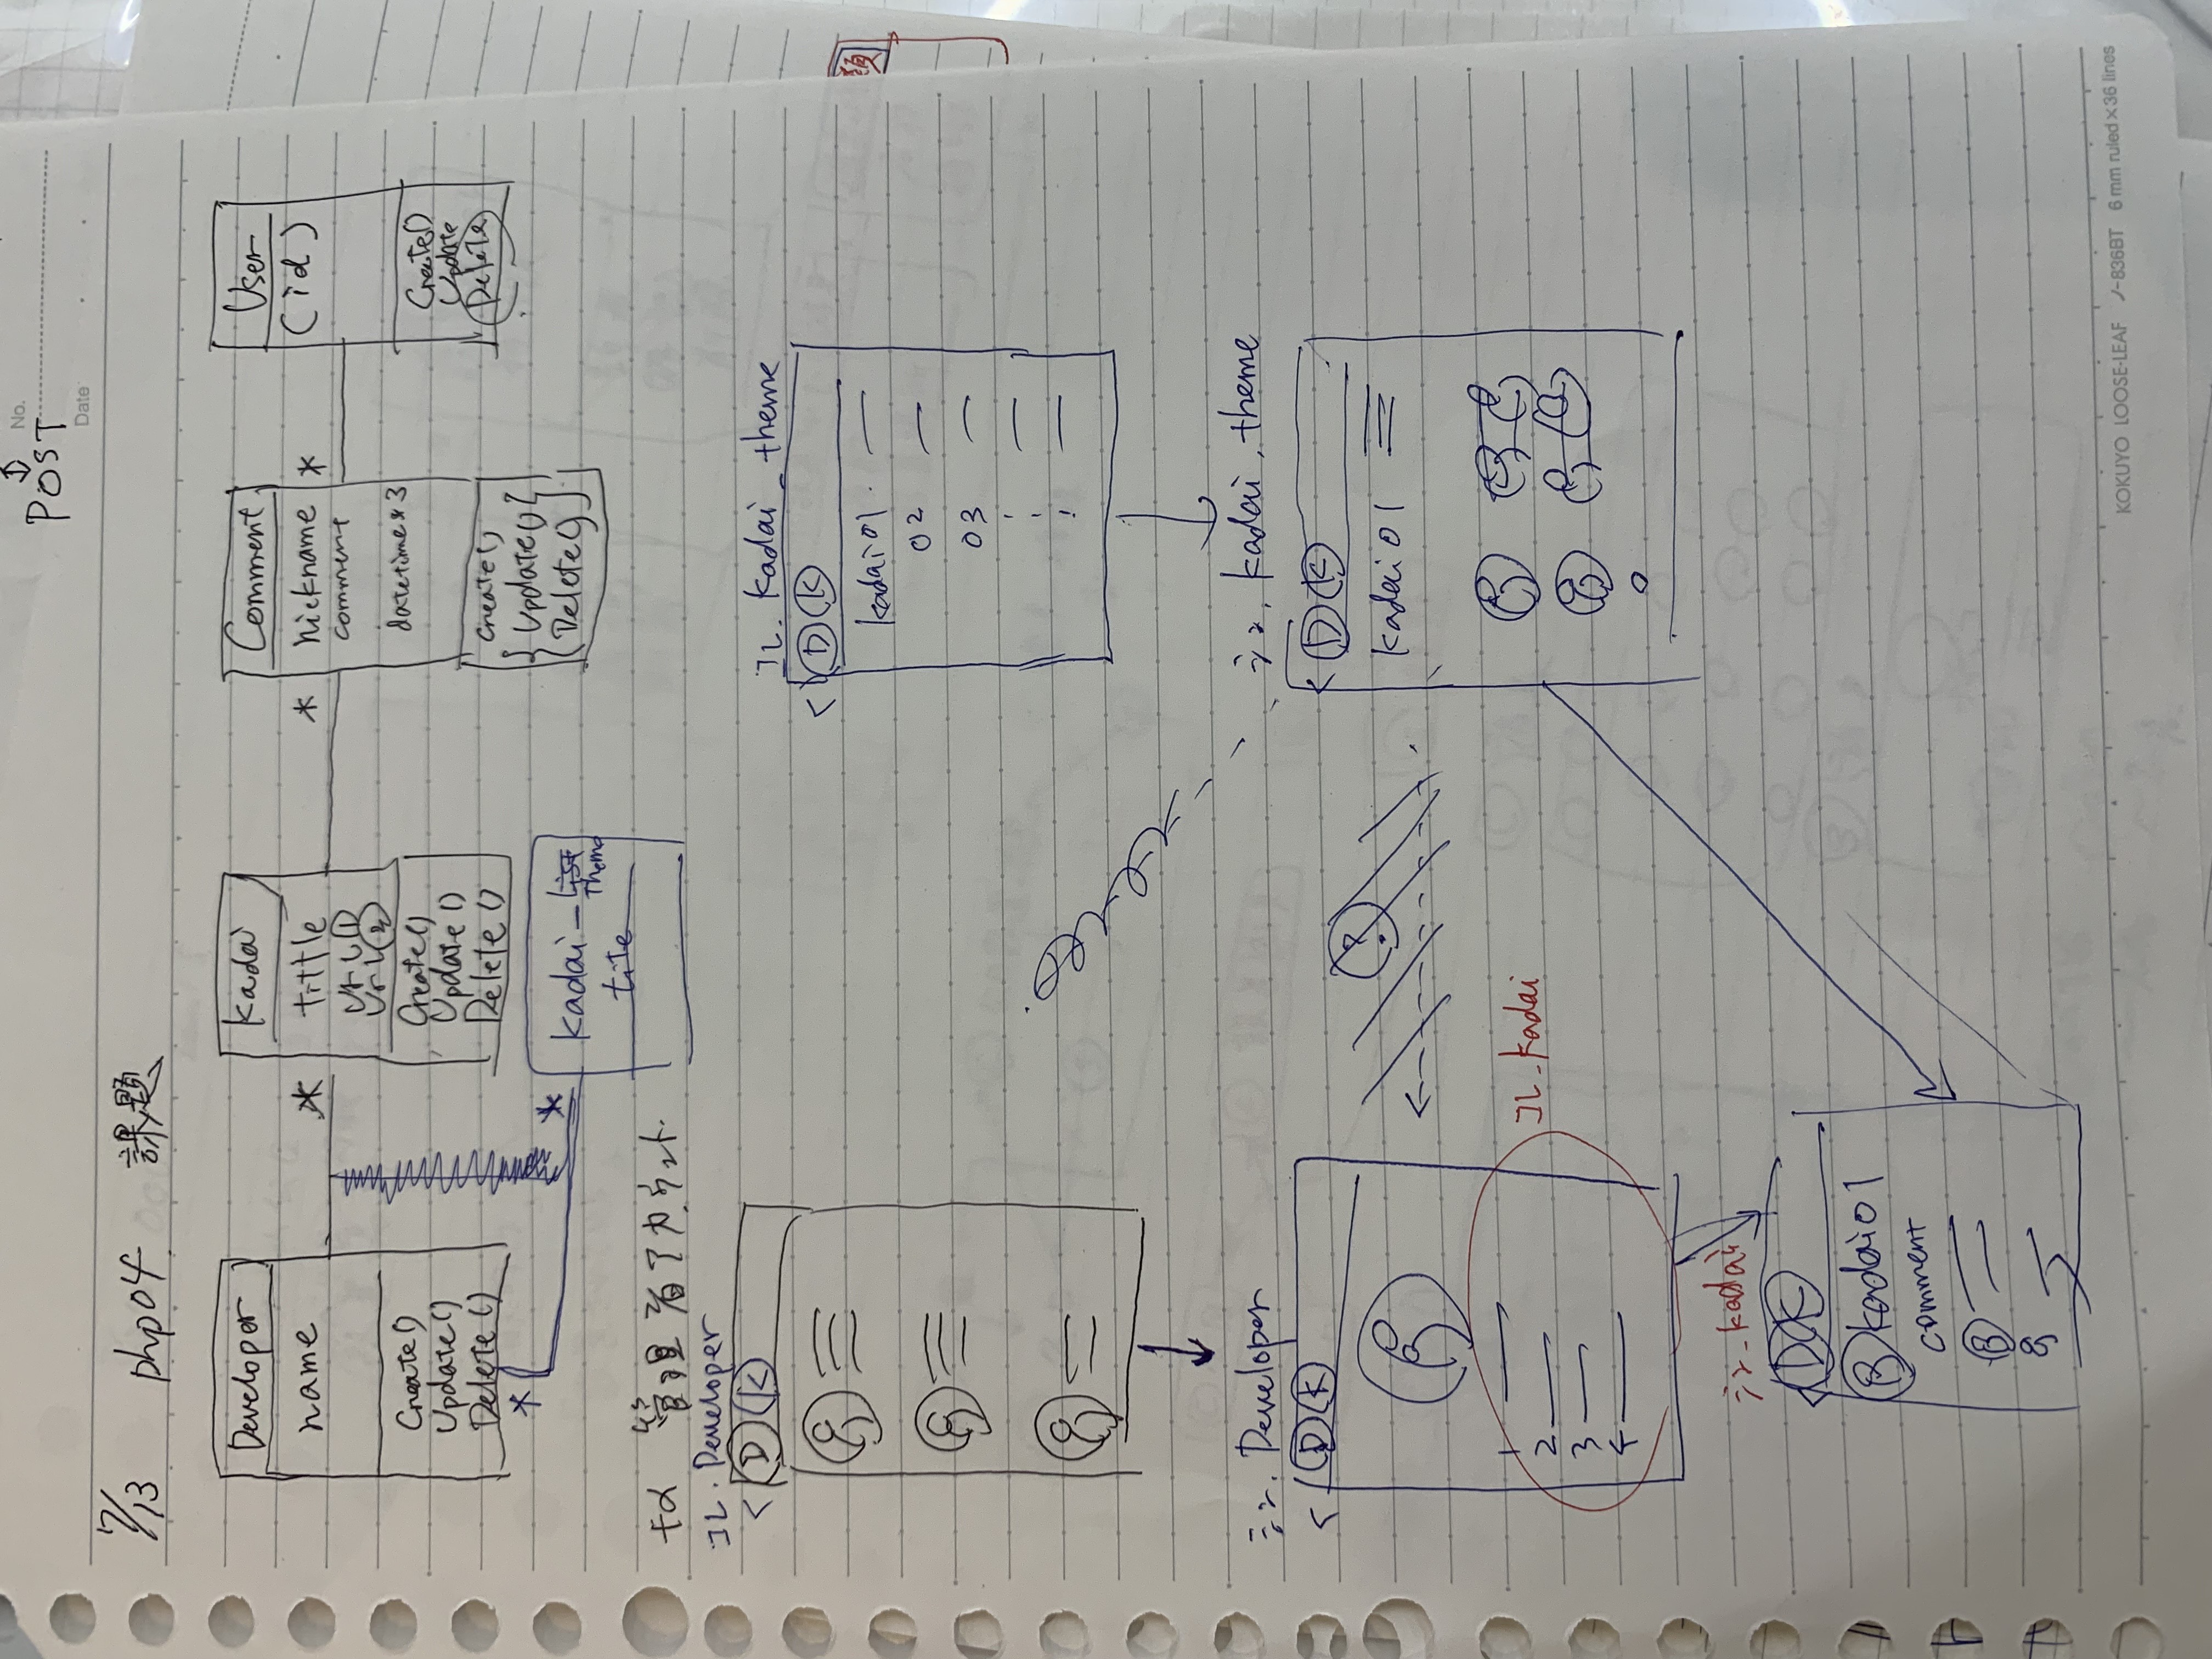 POST
No.
Date
7/13 php04 課題
Developer
name
Create()
Update()
Delete()
*
*
Kadai
tittle
url①
url②
Create()
Update()
Delete()
*
Comment
nickname
comment
datetime*3
Create()
Update()
Delete()
*
User
(id)
Create()
Update
Delete
*
kadai-List
Theme
tite
+α 管理者アカウント
コレ. Developer
< D K
コレ. Kadai_theme
< D K
kadai01
02
03
シン. Developer
< D K
1
2
3
4
コレ-kadai
?
シン. Kadai.theme
< D K
Kadai01
シン-kadai
< D K
kadai01
comment
KOKUYO LOOSE-LEAF ノ-836BT 6 mm ruled×36 lines